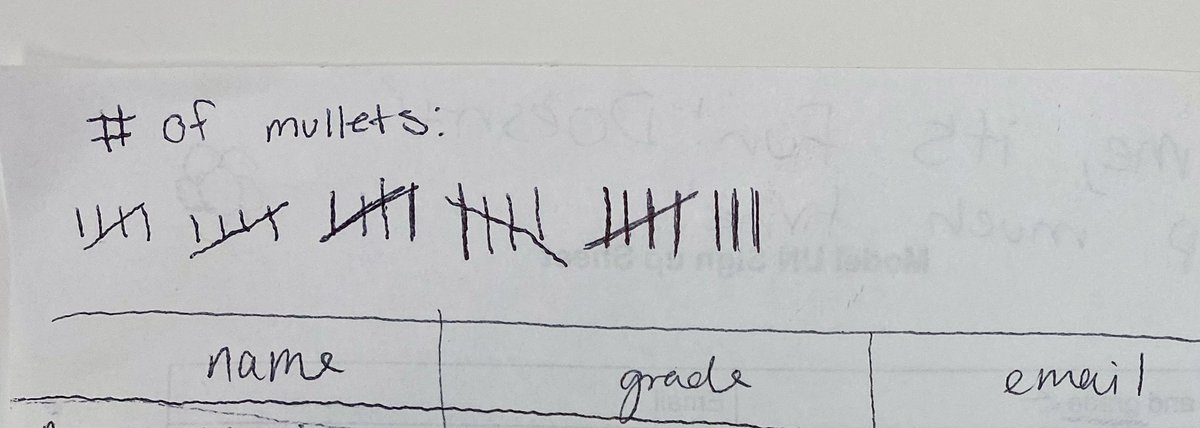 # of mullets:
name grade email